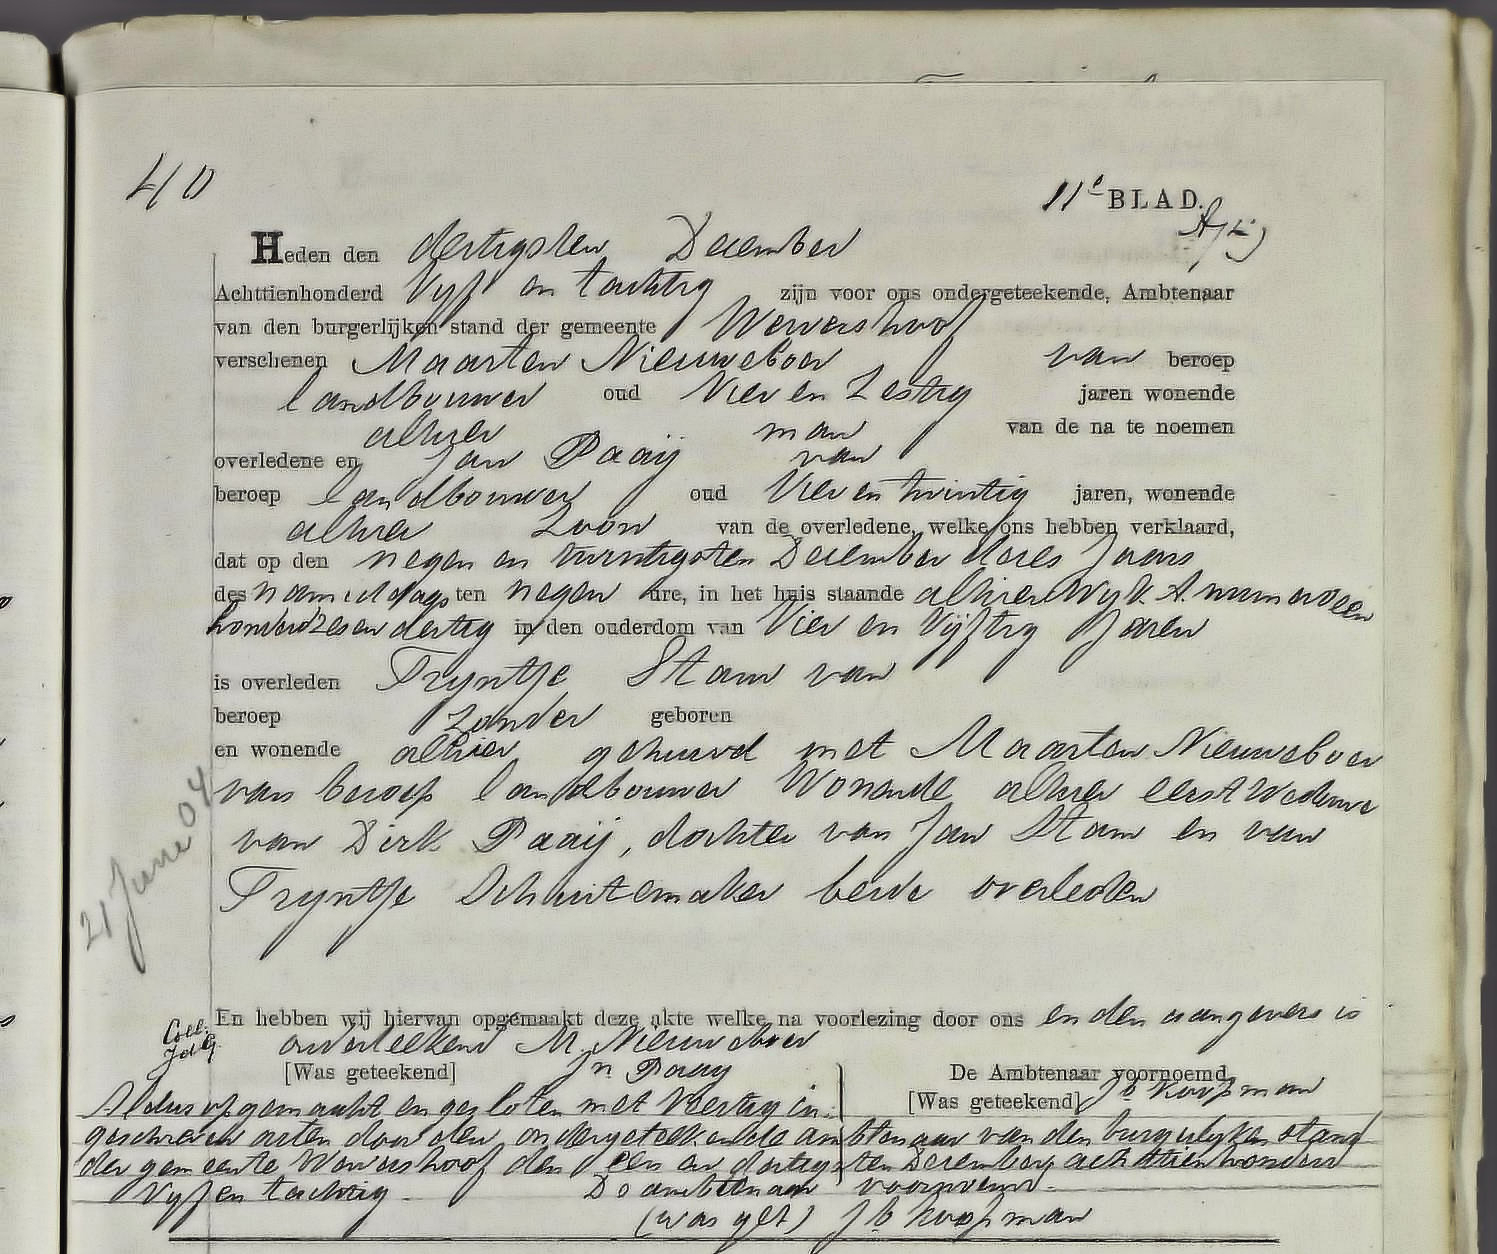 40
11e BLAD.
Heden den dertigsten December
Achttienhonderd Vijf en tachtig zijn voor ons ondergeteekende, Ambtenaar
van den burgerlijken stand der gemeente Wervershoof
verschenen Maarten Nieuweboer van beroep
landbouwer oud Vier en Zestig jaren wonende
alhier man van de na te noemen
overledene en Jan Paaij van
beroep landbouwer oud Vier en twintig jaren, wonende
alhier zoon van de overledene, welke ons hebben verklaard,
dat op den negen en twintigsten December dezes Jaars
des namiddags ten negen ure, in het huis staande alhier Wijk A nummer een
honderd zes en dertig in den ouderdom van Vier en Vijftig Jaren
is overleden Tryntje Stam van
beroep zonder geboren
en wonende alhier gehuwd met Maarten Nieuweboer
van beroep landbouwer Wonende alhier eerst Weduwe
van Dirk Paaij, dochter van Jan Stam en van
Tryntje Schuitemaker beide overleden
21 Junie 04
En hebben wij hiervan opgemaakt deze akte welke na voorlezing door ons en den aangevers is
Coll.
onderteekend M. Nieuweboer
[Was geteekend] Jn Paaij De Ambtenaar voornoemd,
[Was geteekend] Jb Koopman
Aldus opgemaakt en gesloten met Veertig in-
geschreven acten door den ondergeteekende ambtenaar van den burgerlijken stand
der gemeente Wervershoof den een en dertigsten December achttienhonderd
Vijf en tachtig. De ambtenaar voornoemd.
(was get) Jb Koopman